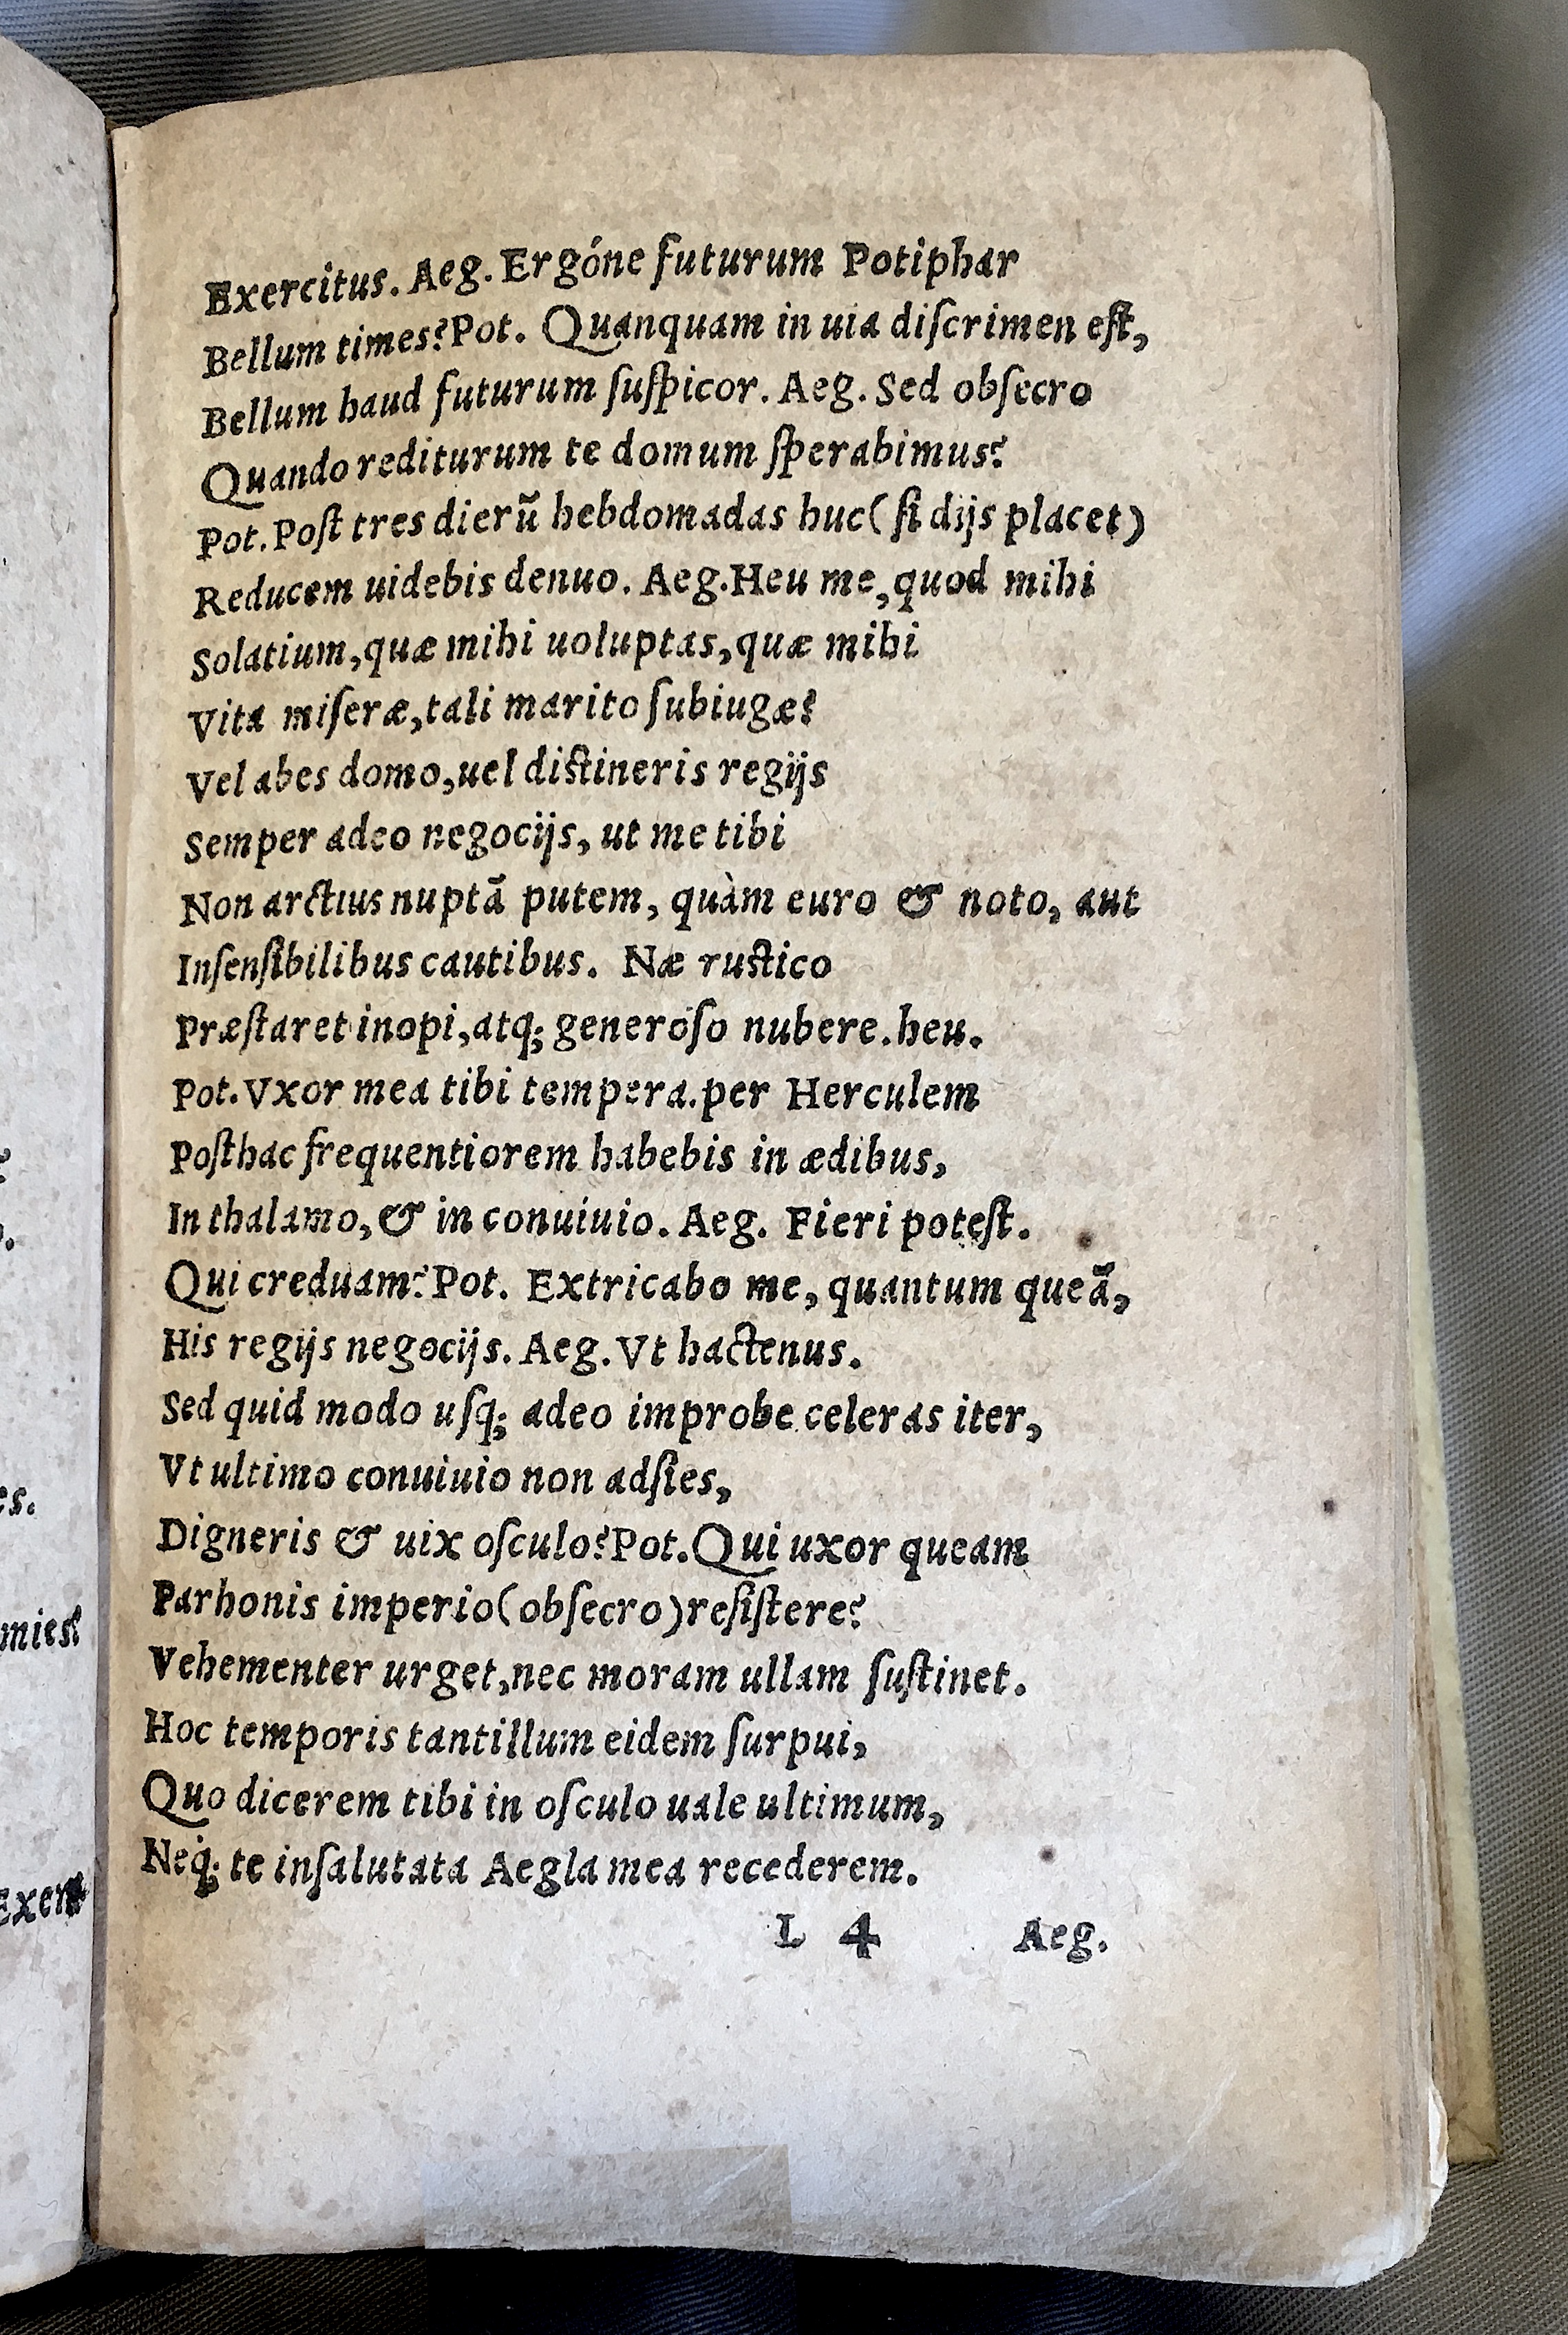 Exercitus. Aeg. Ergóne futurum Potiphar
Bellum times? Pot. Quanquam in uia diſcrimen eſt,
Bellum haud futurum ſuſpicor. Aeg. Sed obſecro
Quando rediturum te domum ſperabimus?
Pot. Poſt tres dierũ hebdomadas huc (ſi dijs placet)
Reducem uidebis denuo. Aeg. Heu me, quod mihi
Solatium, quæ mihi uoluptas, quæ mihi
Vita miſeræ, tali marito ſubiugæ?
Vel abes domo, uel diſtineris regijs
Semper adeo negocijs, ut me tibi
Non arctius nuptã putem, quàm euro & noto, aut
Inſenſibilibus cautibus. Næ ruſtico
Præſtaret inopi, atq; generoſo nubere. heu.
Pot. Vxor mea tibi tempera. per Herculem
Poſthac frequentiorem habebis in ædibus,
In thalamo, & in conuiuio. Aeg. Fieri poteſt.
Qui creduam? Pot. Extricabo me, quantum queã,
His regijs negocijs. Aeg. Vt hactenus.
Sed quid modo uſq; adeo improbe celeras iter,
Vt ultimo conuiuio non adſies,
Digneris & uix oſculo? Pot. Qui uxor queam
Parhonis imperio (obſecro) reſiſtere?
Vehementer urget, nec moram ullam ſuſtinet.
Hoc temporis tantillum eidem ſurpui,
Quo dicerem tibi in oſculo uale ultimum,
Neq; te inſalutata Aegla mea recederem.
L 4 Aeg.
es.
mies?